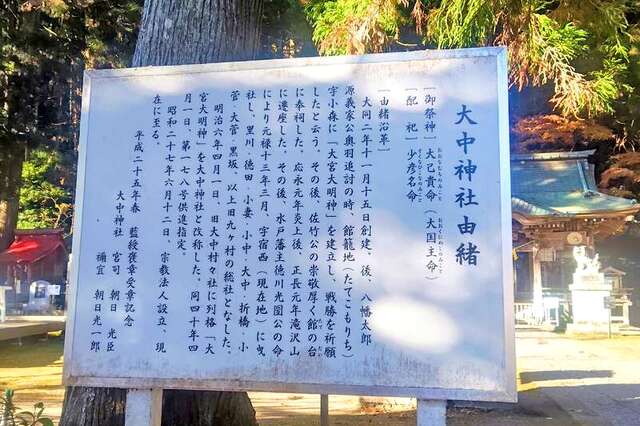 大中神社由緒
［御祭神］大己貴命（大国主命）
［配　祀］少彦名命
［由緒沿革］
大同二年十一月十五日創建、後、八幡太郎
源義家公奥羽追討の時、館籠地（たてこもりち）
宇小森に「大宮大明神」を建立し、戦勝を祈願
したと云う。その後、佐竹公の崇敬厚く館の台
に奉祠した。応永元年炎上後、正長元年滝沢山
に遷座した。その後、水戸藩主徳川光圀公の命
により元禄十三年三月、宇宿西（現在地）に曳
社し、里川・徳田・小妻・小中・大中・折橋・小
菅・大菅・黒坂、以上旧九ヶ村の総社となした。
明治六年四月一日、旧大中村々社に列格「大
宮大明神」を大中神社と改称した。同四十年四
月一日、第一七八号供進指定。
昭和二十七年六月十二日、宗教法人設立、現
在に至る。
平成二十五年春　藍綬褒章受章記念
大中神社　宮司　朝日　光臣
禰宜　朝日光一郎